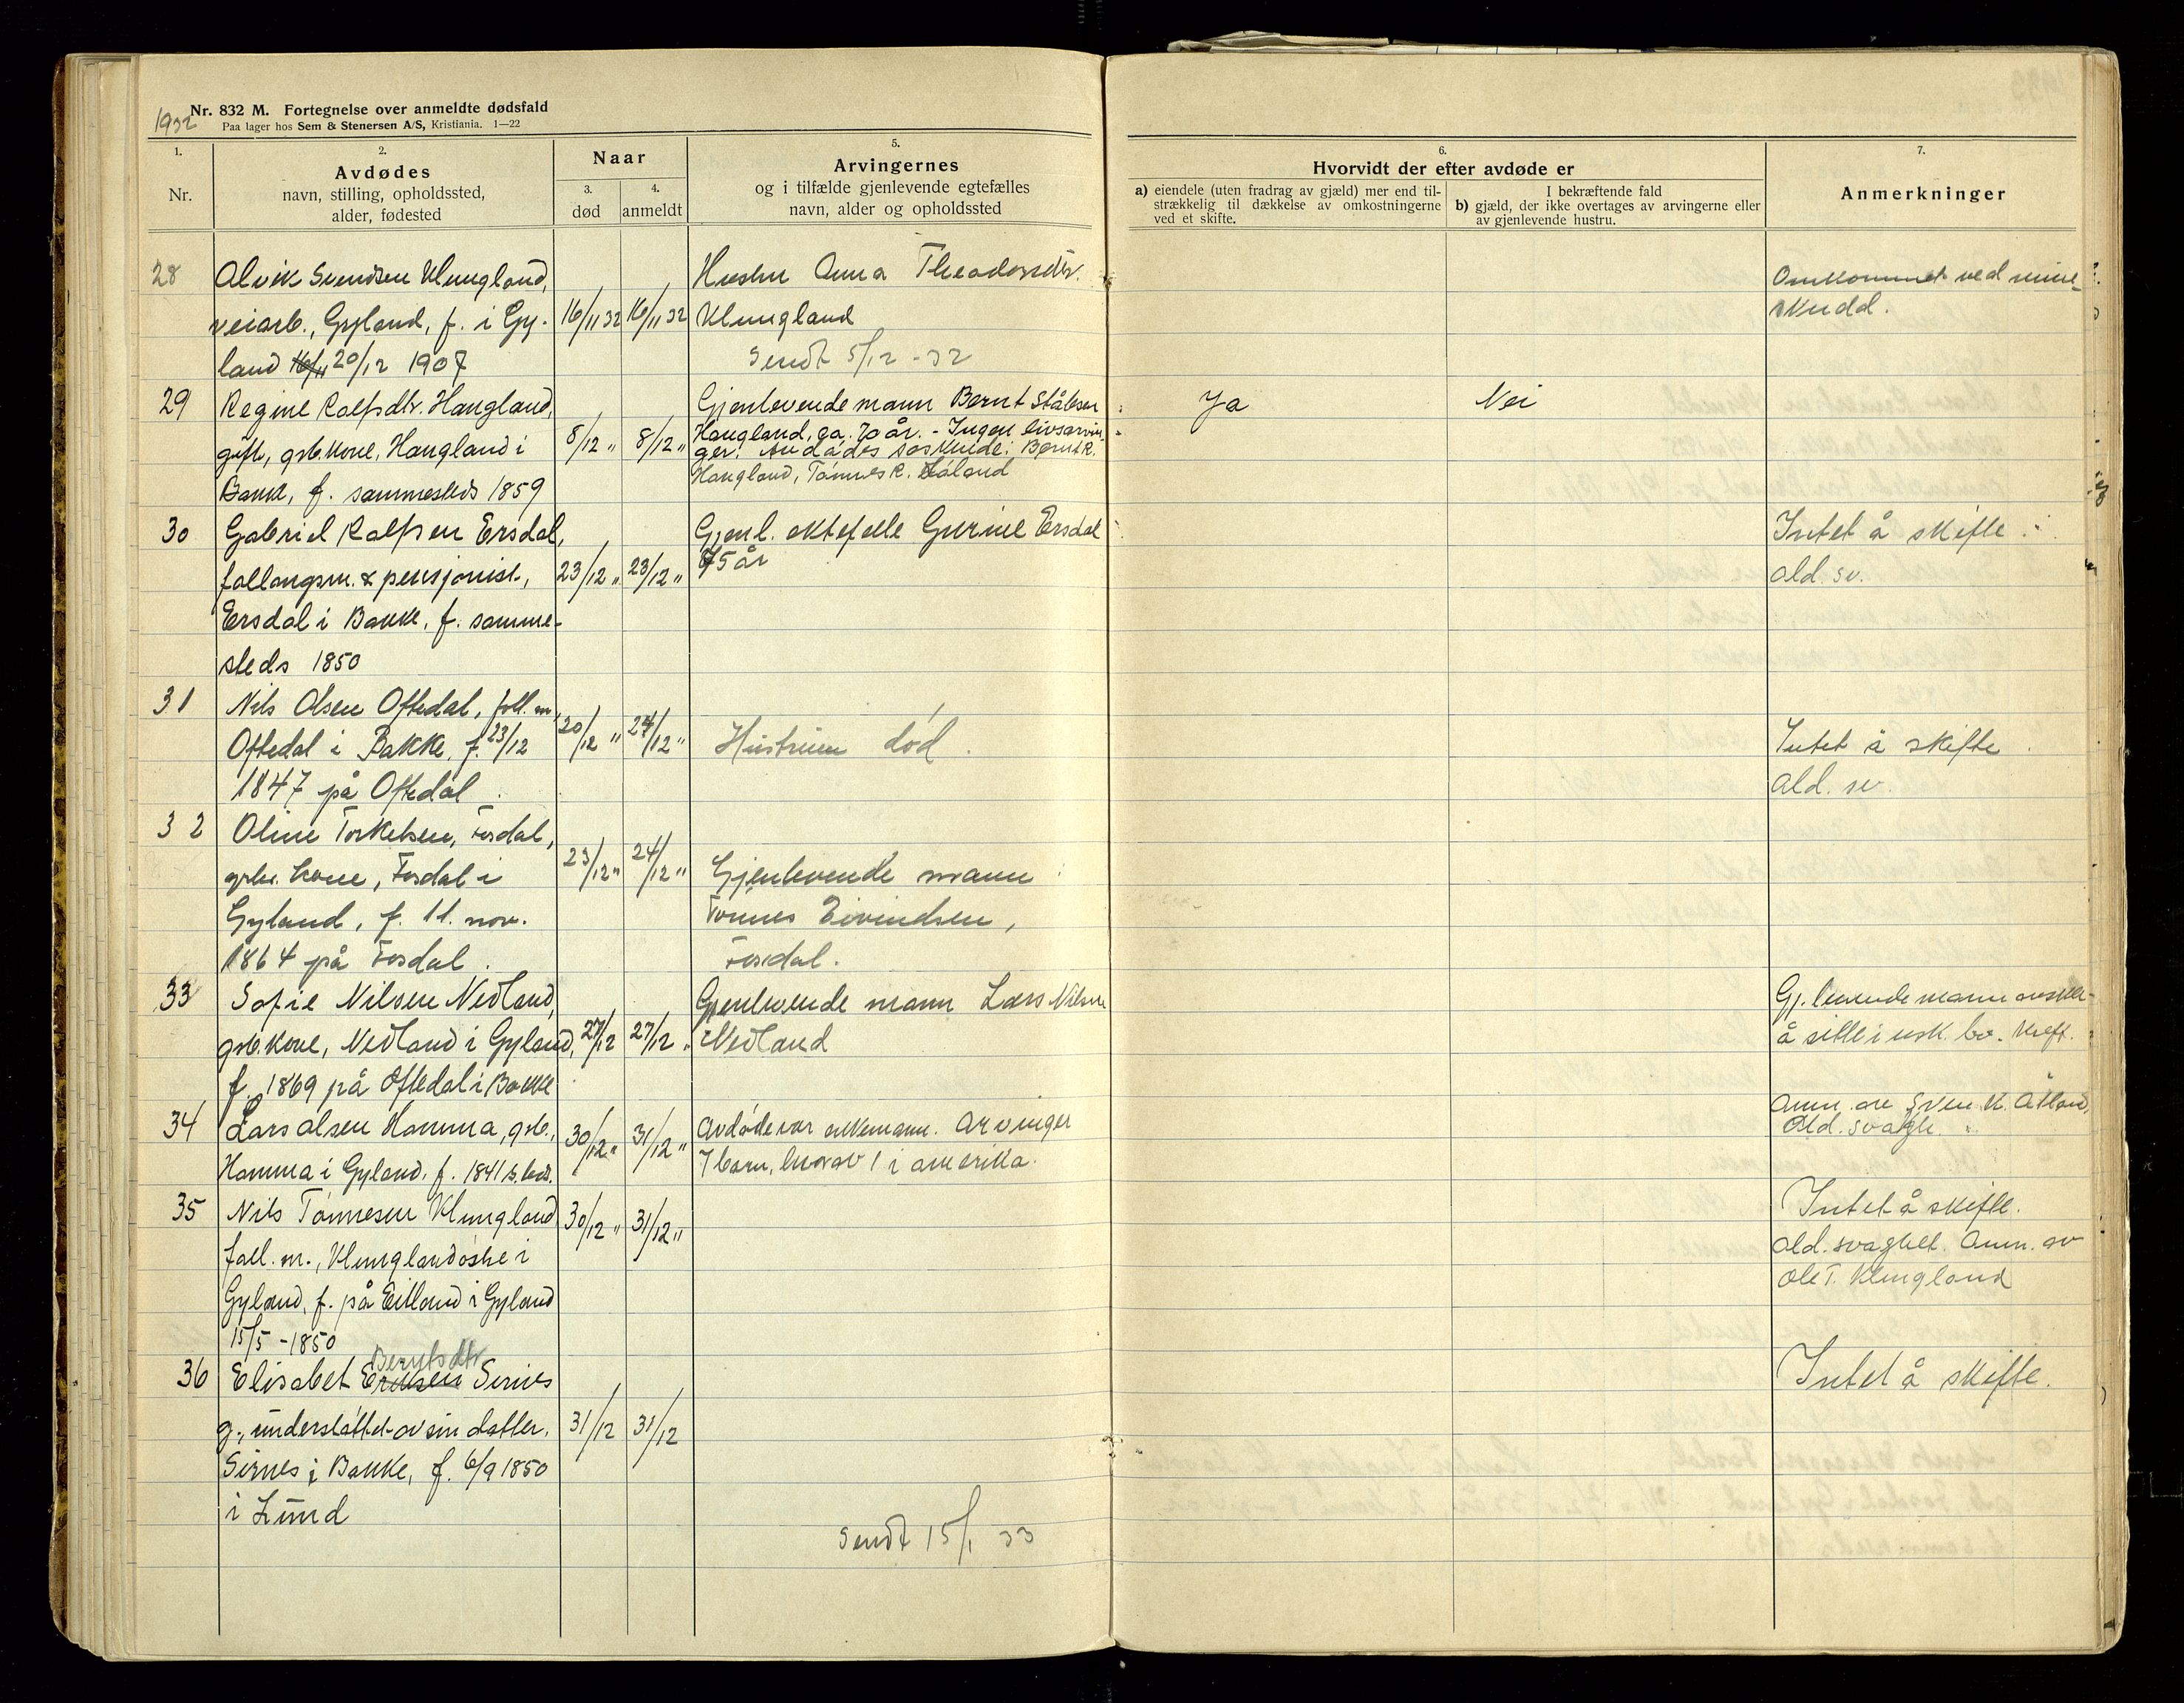 1932
Nr. 832 M. Fortegnelse over anmeldte dødsfald
Paa lager hos Sem & Stenersen A/S, Kristiania. 1—22
1.
Nr.
2.
Avdødes
navn, stilling, opholdssted,
alder, fødested
Naar
3.
død
4.
anmeldt
5.
Arvingernes
og i tilfælde gjenlevende egtefælles
navn, alder og opholdssted
6.
Hvorvidt der efter avdøde er
a) eiendele (uten fradrag av gjæld) mer end til-
strækkelig til dækkelse av omkostningerne
ved et skifte.
I bekræftende fald
b) gjæld, der ikke overtages av arvingerne eller
av gjenlevende hustru.
7.
Anmerkninger
28 Alvik Svendsen Klungland,
veiarb., Gyland, f. i Gy-
land 16/11 20/12 1907
16/11 32 16/11 32
Hustru Anna Theodorsdtr.
Klungland
Sendt 5/12 - 32
Omkommet ved mine-
skudd.
29 Regine Rolfsdtr. Haugland,
gift, grb.kone, Haugland i
Bakke, f. sammesteds 1859
8/12 " 8/12 "
Gjenlevende mann Bernt Stålesen
Haugland, ca. 70 år. - Ingen livsarvin-
ger. Avdødes søskende: Bernt R.
Haugland, Tønnes R. Håland
Ja
Nei
30 Gabriel Rolfsen Ersdal,
follaugsm. & pensjonist,
Ersdal i Bakke, f. samme-
steds 1850
23/12 " 23/12 "
Gjenl. ektefelle Gurine Ersdal
75 år
Intet å skifte
ald. sv.
31 Nils Olsen Oftedal, foll. m.
Oftedal i Bakke, f. 23/12
1847 på Oftedal.
20/12 " 24/12 "
Hustruen død.
Intet å skifte
ald. sv.
32 Oline Torkelsen, Fosdal,
grbr. kone, Fosdal i
Gyland, f. 11. nov.
1864 på Fosdal.
23/12 " 24/12 "
Gjenlevende mann
Tønnes Eivindsen,
Fosdal.
33 Sofie Nilsen Nedland,
grb.kone, Nedland i Gyland,
f. 1869 på Oftedal i Bakke
27/12 27/12 "
Gjenlevende mann Lars Nilsen
Nedland
Gj.levende mann ønsker
å sitte i usk. bo. Kreft.
34 Lars Olsen Homma, grb.,
Homma i Gyland, f. 1841 s. steds.
30/12 " 31/12 "
Avdøde var enkemann. Arvinger
7 barn, hvorav 1 i Amerika.
Anm. av Sven K. Åtland,
Ald. svagh.
35 Nils Tønnesen Klungland
foll. m., Klunglandósne i
Gyland, f. på Eitland i Gyland
15/5 - 1850
30/12 " 31/12 "
Intet å skifte.
Ald. svaghet. Anm. av
Ole T. Klungland
Berntsdtr
36 Elisabet Eriksen Sirnes
g., understøttet av sin datter.
Sirnes i Bakke, f. 6/9 1850
i Lund
31/12 31/12
Intet å skifte.
Sendt 15/1 33